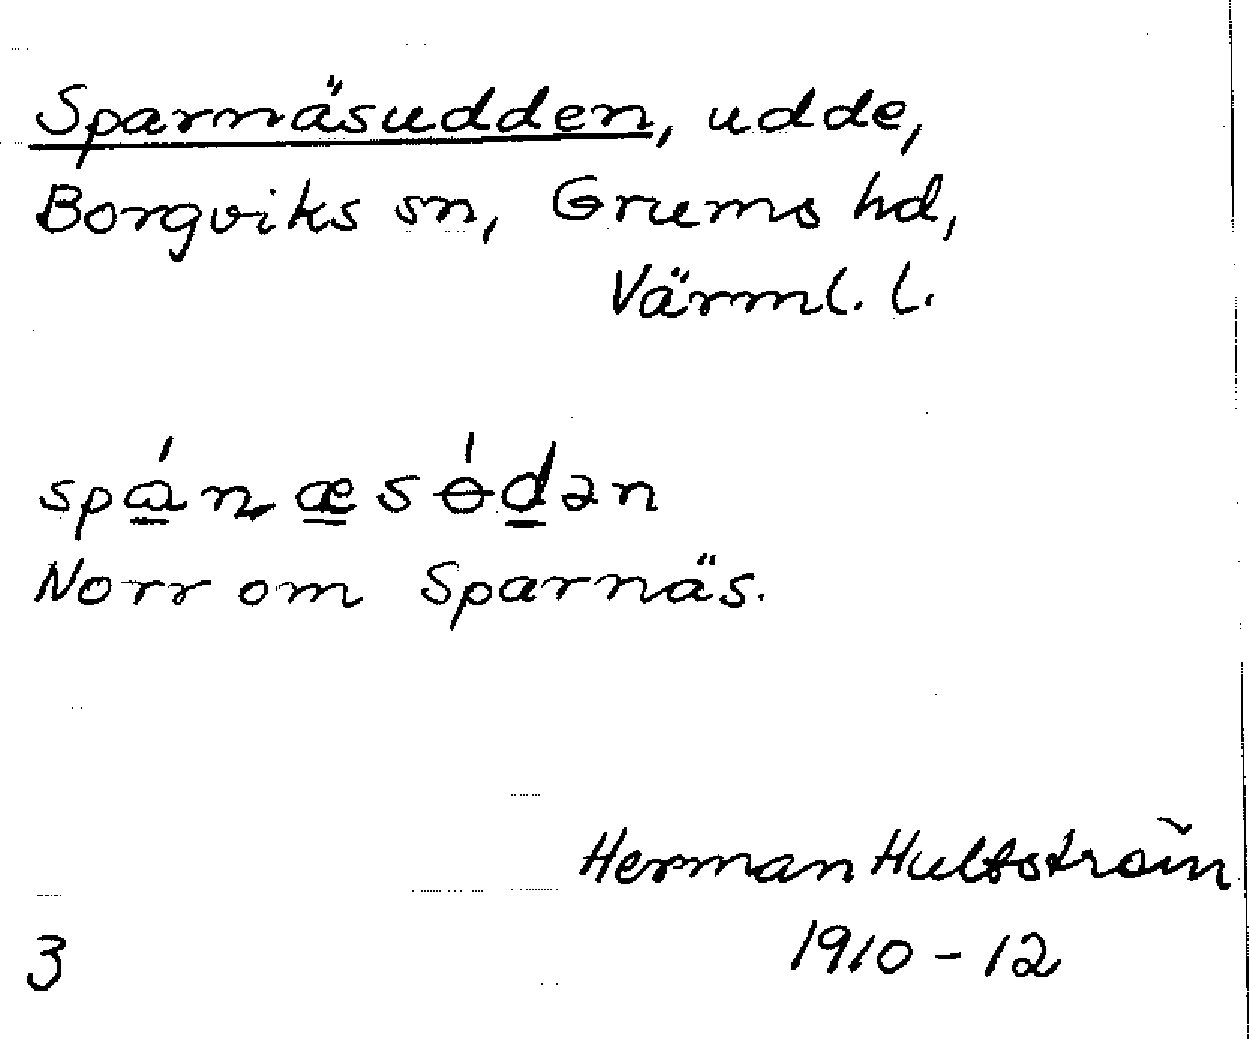 Sparnäsudden, udde,
Borgviks sn, Grums hd,
Värml. l.
spá̱n æ̱sɵ́ḏən
Norr om Sparnäs.
Herman Hultström
1910-12
3